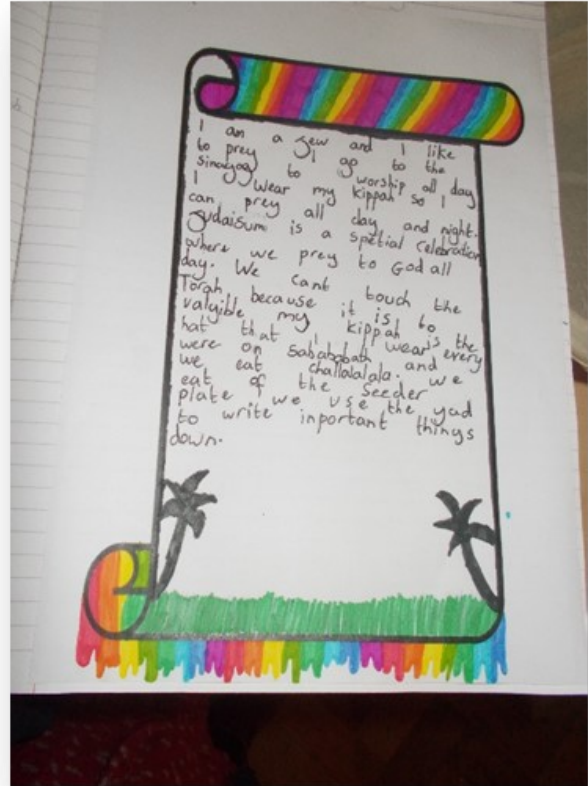 I am a Jew and I like
to prey I go to the
sinagog to worship all day
I Wear my kippah so I
can prey all day and night.
Judaisum is a spetial celebration
where we prey to God all
day. We cant touch the
Torah because it is to
valyible my kippah is the
hat that I wear every
were on sabababath and
we eat challalalala. we
eat of the seeder
plate, we use the yad
to write inportant things
down.